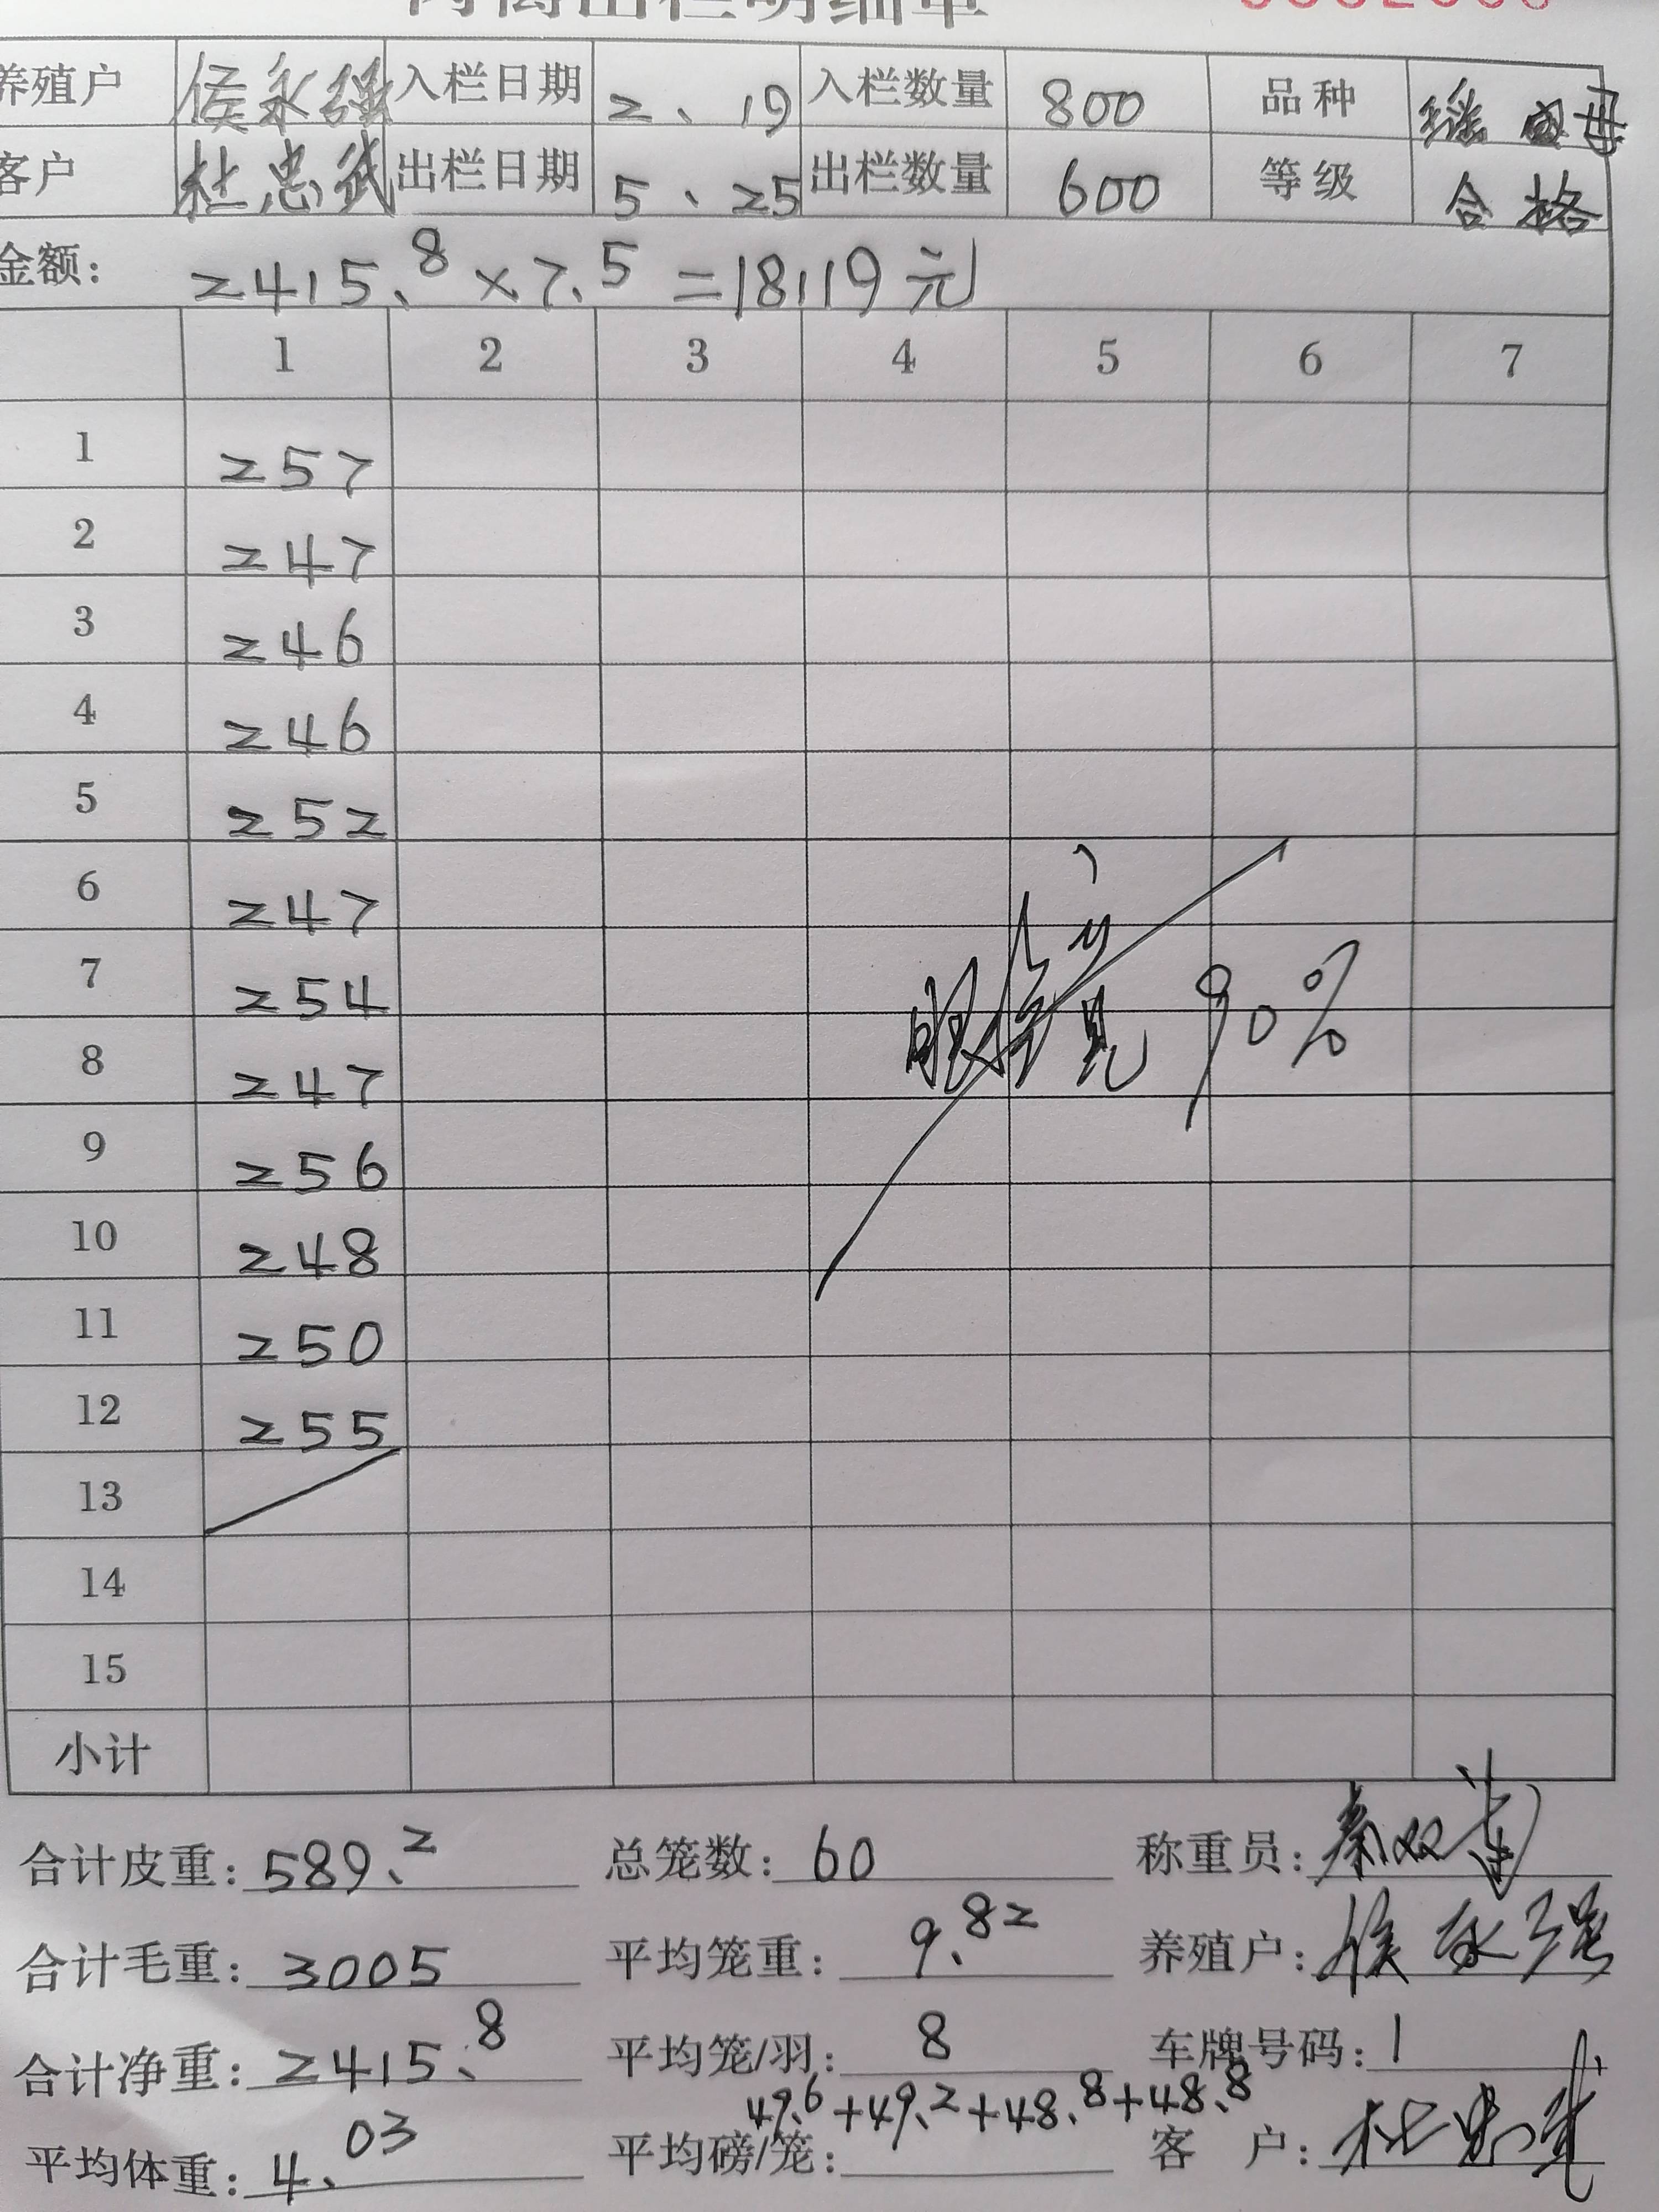 出栏明细单
养殖户 侯永强 入栏日期 2、19 入栏数量 800 品种
客户 杜忠武 出栏日期 5、25 出栏数量 600 等级 合格
金额: 2415.8×7.5=18119元
1 2 3 4 5 6 7
1 257
2 247
3 246
4 246
5 252
6 247
7 254
8 247
9 256
10 248
11 250
12 255
13
14
15
90%
小计
合计皮重: 589.2 总笼数: 60 称重员:
合计毛重: 3005 平均笼重: 9.82 养殖户: 侯永强
合计净重: 2415.8 平均笼/羽: 8 车牌号码: 1
49.6+49.2+48.8+48.8
平均体重: 4.03 平均磅/笼: 客 户: 杜忠武